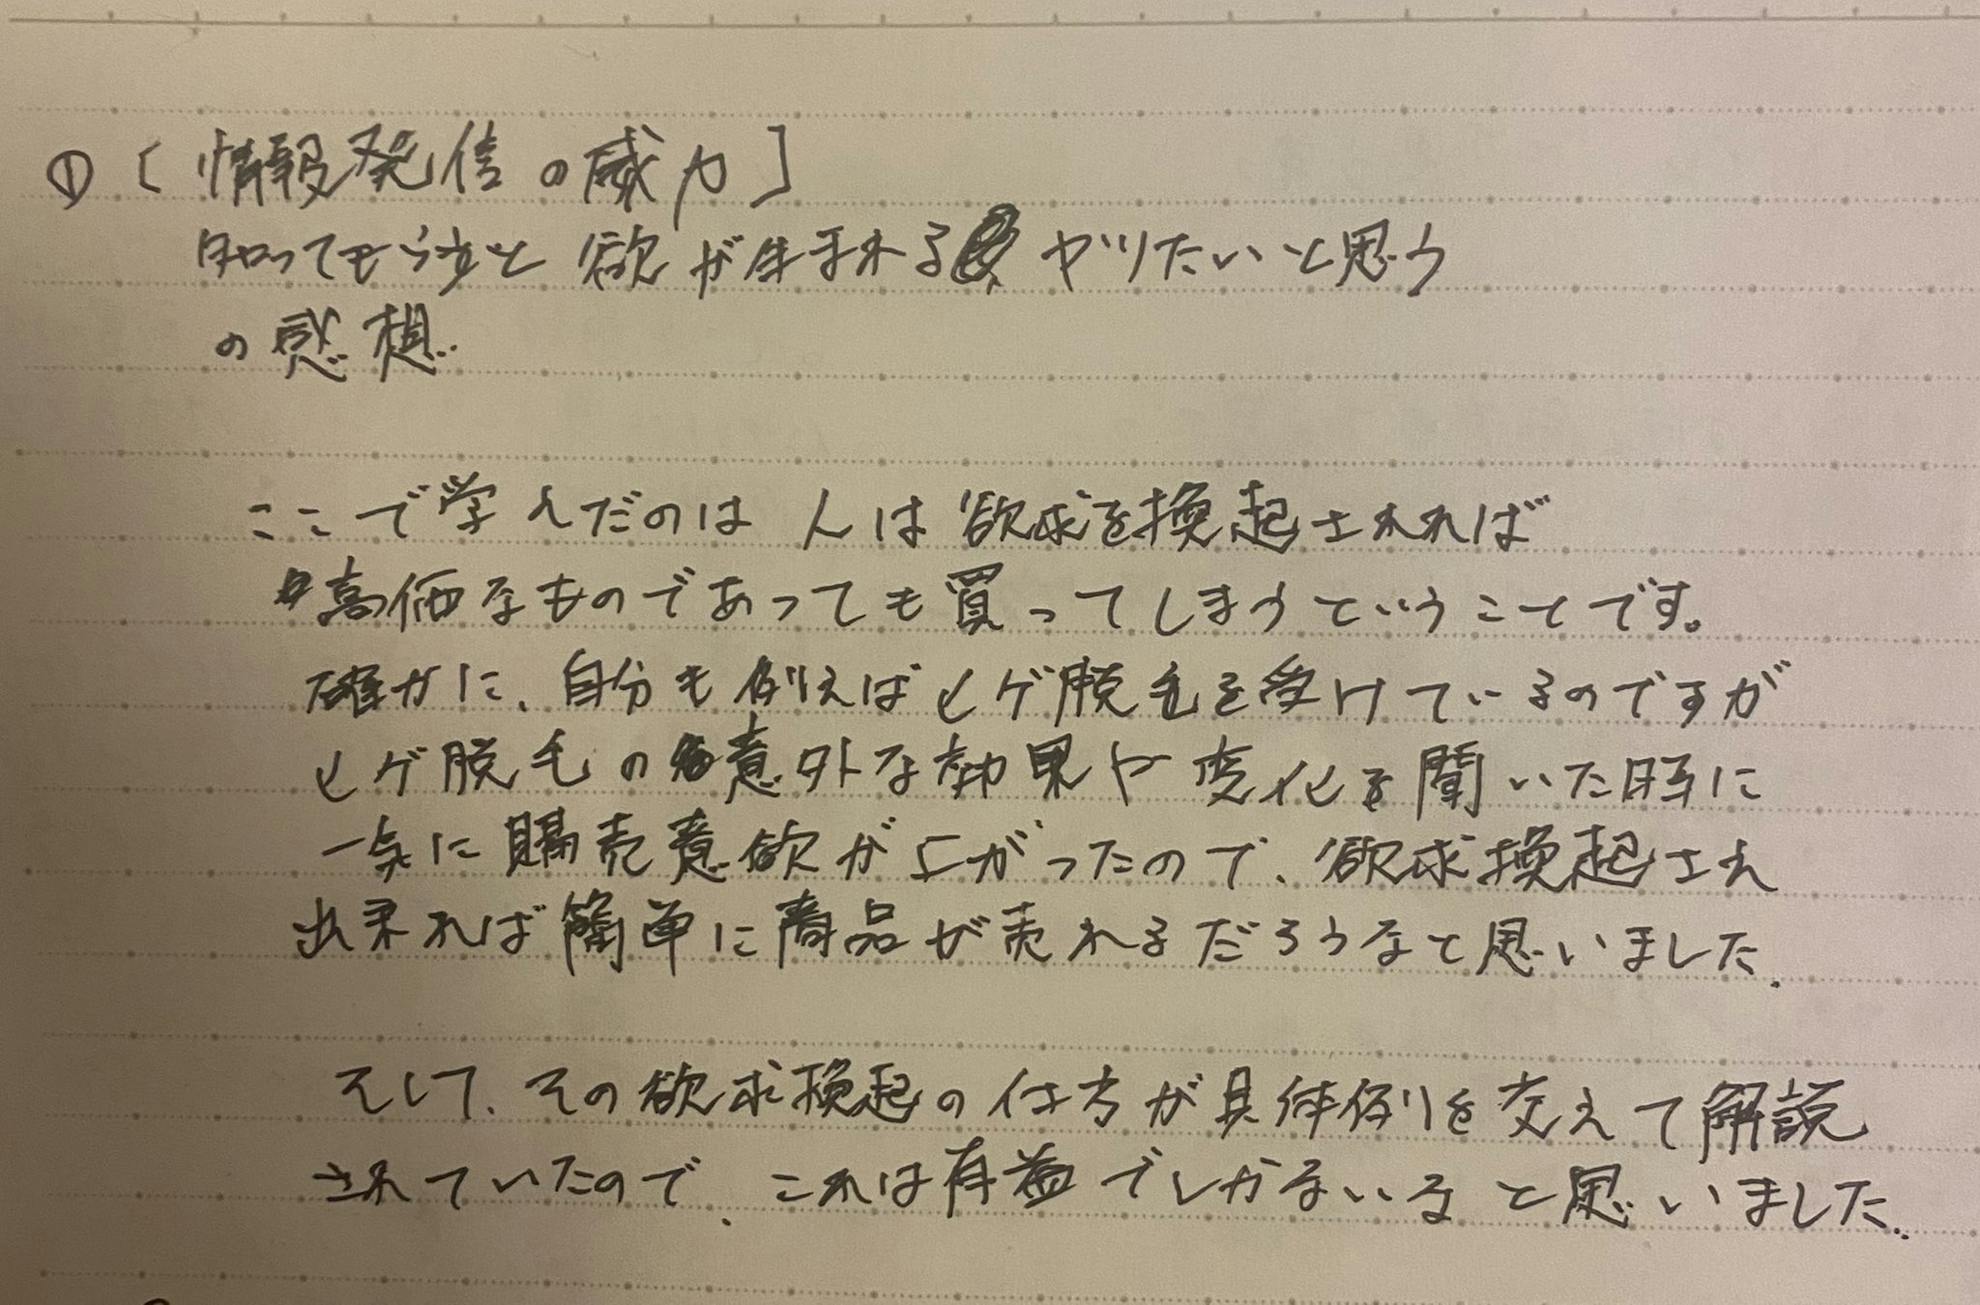 ① [情報発信の威力]
知ってもらうと 欲が生まれる ヤリたいと思う
の感想
ここで学んだのは 人は欲求を換起されれば
高価なものであっても買ってしまうということです。
確かに、自分も例えばヒゲ脱毛を受けているのですが
ヒゲ脱毛の意外な効果や変化を聞いた時に
一気に購売意欲が上がったので、欲求換起され
出来れば簡単に商品が売れるだろうなと思いました.
そして、その欲求換起の仕方が具体例を交えて解説
されていたので、これは有益でしかないなと思いました.